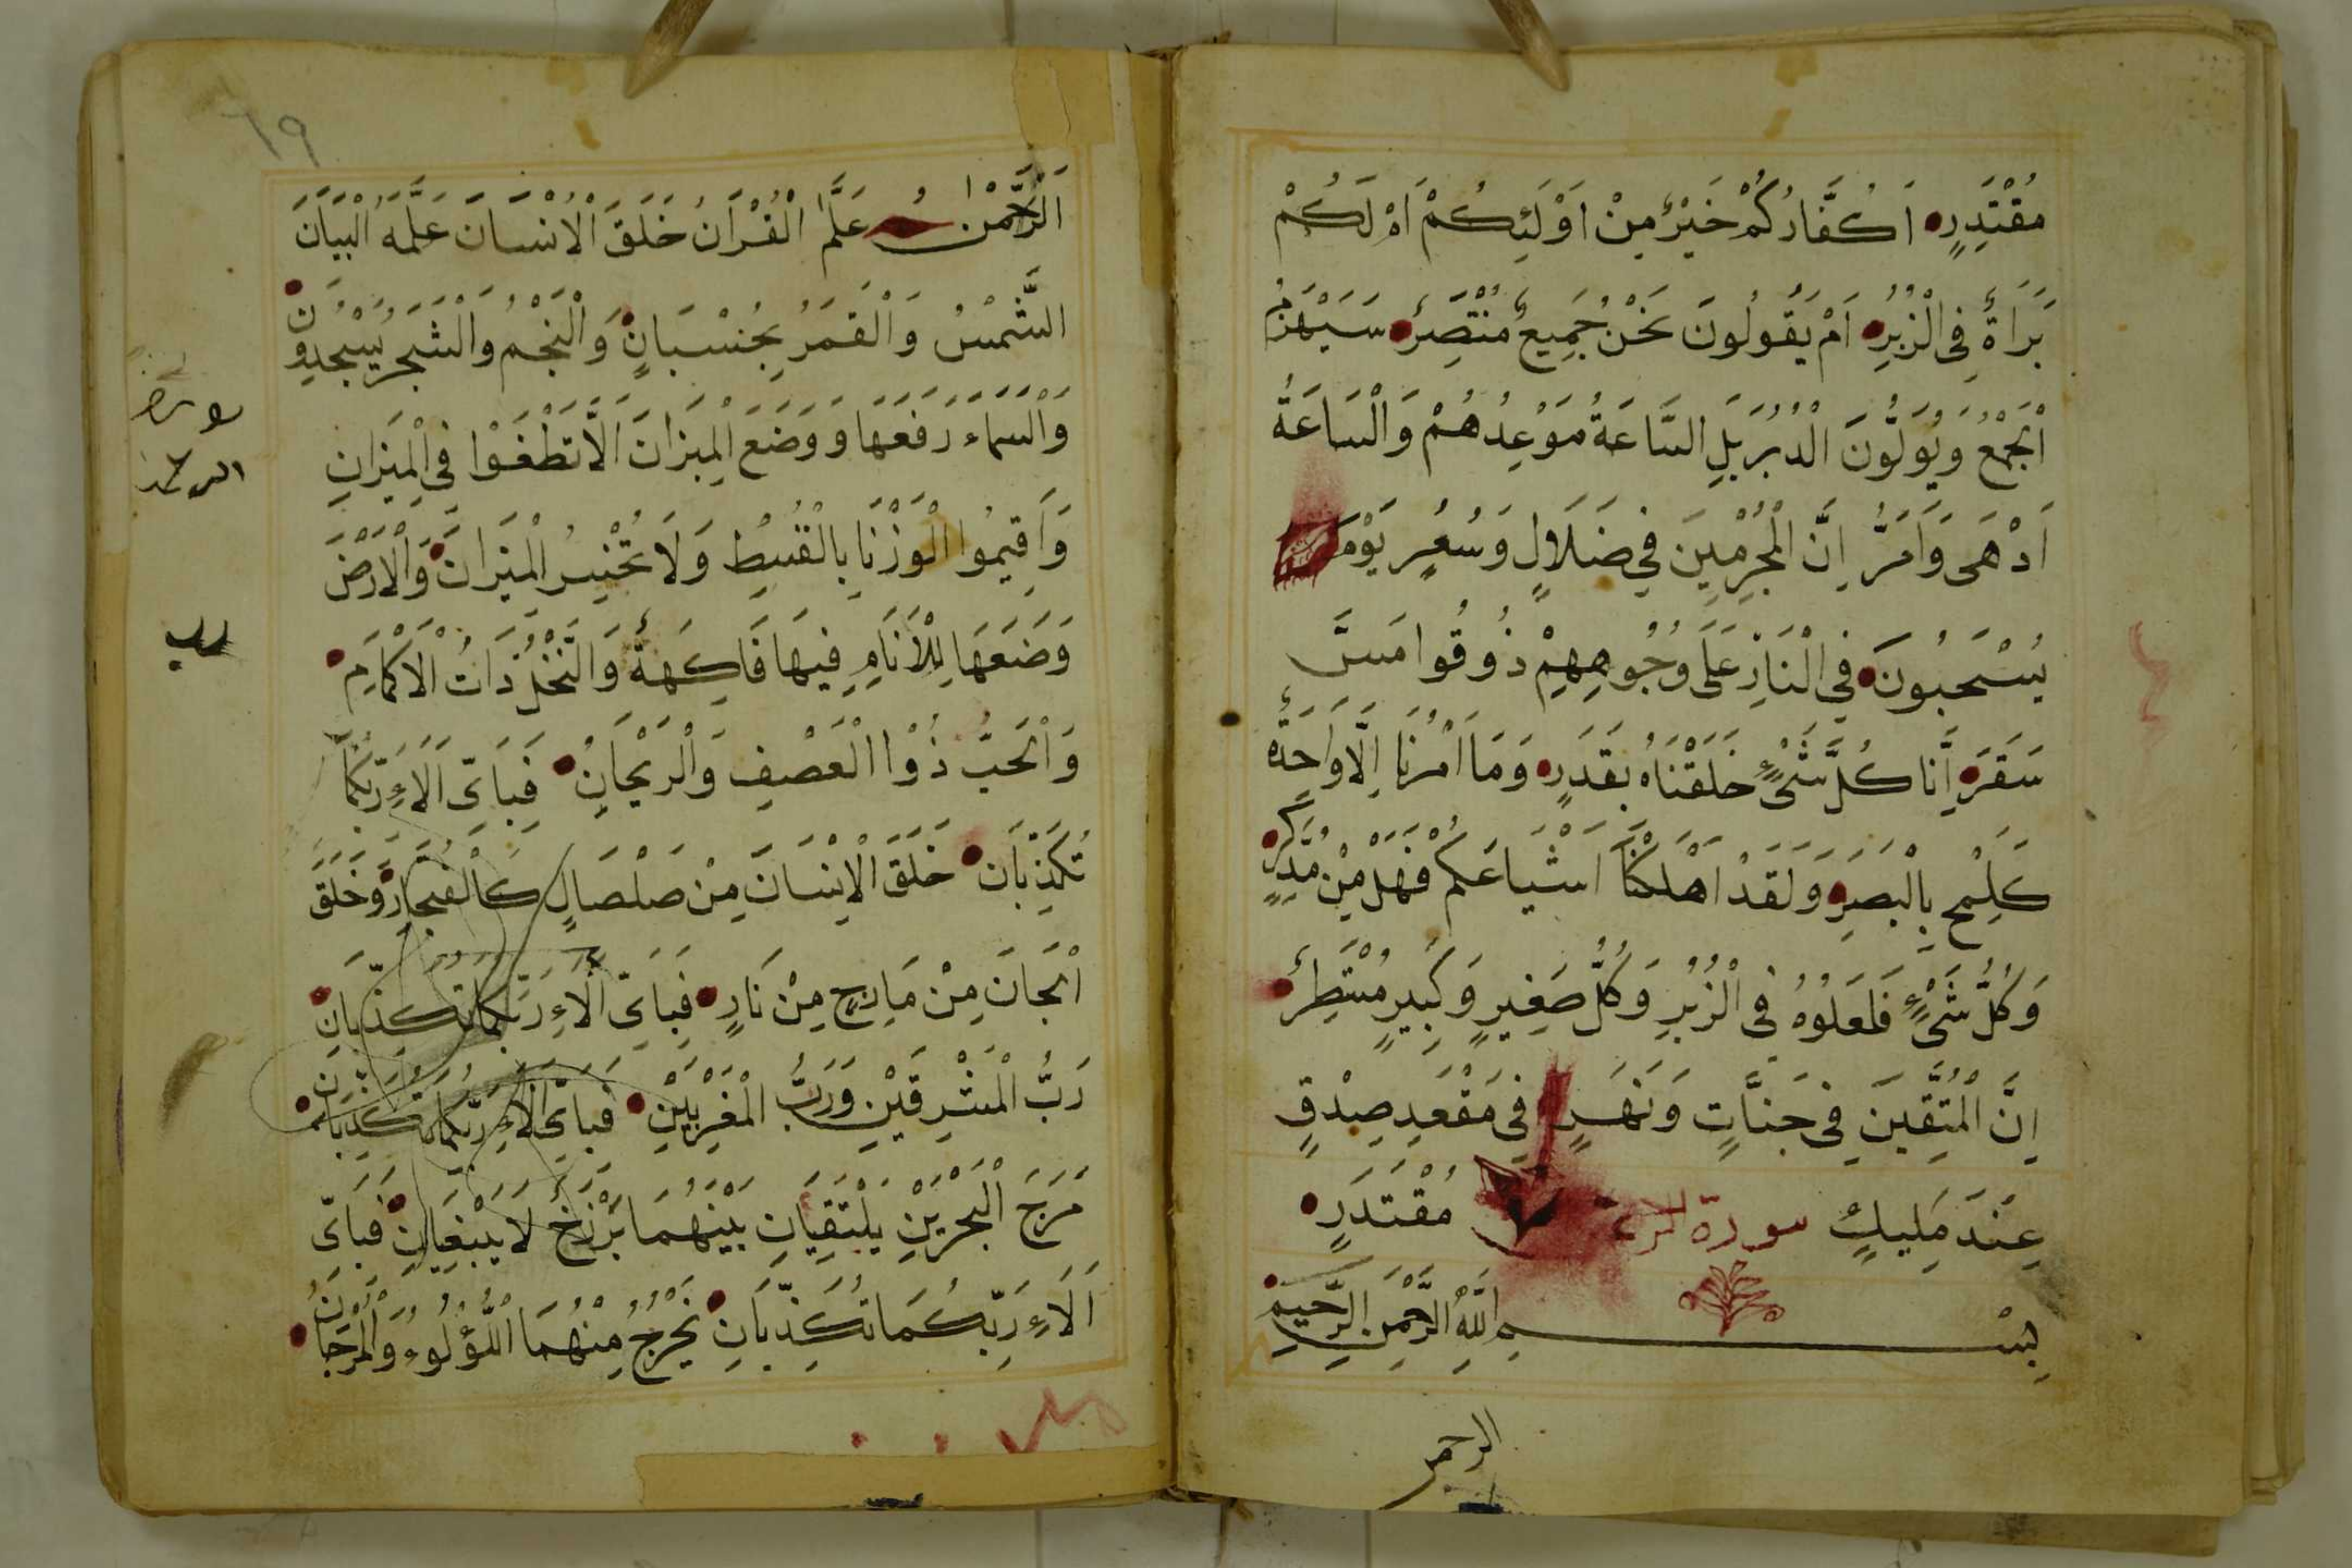 مُقْتَدِرٍ اَكُفَّارُكُمْ خَيْرٌ مِنْ اُوْلَئِكُمْ اَمْ لَكُمْ
بَرَاةٌ فِى الْزُبُرِ اَمْ يَقُولُونَ نَحْنُ جَمِيعٌ مُنْتَصِرٌ سَيَهْزَمُ
اْلجَمْعُ وَيُوَلُّونَ الْدُبُرَ بَلِ السَّاعَةُ مَوْعِدُهُمْ وَالْسَاعَةُ
اَدْهَى وَاَمَرُّ اِنَّ الْمُجْرِمِينَ فِي ضَلَالٍ وَسُعُرٍ يَوْمَ
يُسْحَبُونَ فِى الْنَارِ عَلَى وُجُوهِهِمْ ذُوقُوا مَسَّ
سَقَرَ اِنَّا كُلَّ شَىْءٍ خَلَقْنَاهُ بِقَدَرٍ وَمَا اَمْرُنَا اِلَّا وَاحِدَةٌ
كَلَمْحٍ بِالْبَصَرِ وَلَقَدْ اَهْلَكْنَا اَشْيَاعَكُمْ فَهَلْ مِنْ مُدَّكِرٍ
وَكُلُّ شَىْءٍ فَلَعَلُوُهُ فِى الْزُبُرِ وَكُلُّ صَغِيرٍ وَكَبِيرٍ مُسْتَطِرٌ
اِنَّ الْمُتَّقِينَ فِى جَنَّاتٍ وَنَهَرٍ فِى مَقْعَدِ صِدْقٍ
عِنْدَ مَلِيكٍ سورة مُقْتَدَرٍ
بِسْمِ اللَّهِ الرَّحْمَنِ الرَّحِيمِ
الرحمن
٦٩
اَلرَّحْمٰنُ عَلَّمَ الْقُرْاَنُ خَلَقَ الْاِنْسَانَ عَلَّمَهُ الْبَيَانَ
الشَّمْسُ وَالْقَمَرُ بِحُسْبَانٍ وَالْنَجْمُ وَالْشَجَرُ يَسْجُدُونِ
وَالْسَمَاء رَفَعَهَا وَوَضَعَ الْمِيزَانَ اَلَّا تَطْغَوْا فِى الْمِيْزَانِ
وَاَقِيمُوا الْوَزْنَا بِالْقُسْطِ وَلَا تُخْسِرُ الْمِيْزَانَ وَالْاَرْضَ
وَضَعَهَا لِلْاَنَامِ فِيهَا فَاكِهَةٌ وَالنَّخْلُ ذَاتُ الْاَكْمَامِ
وَالْحَبُّ ذُوْا الْعَصْفِ وَالْرَيْحَانِ فَبِاَىِّ اَلَاءِ رَبِّكُمَا
تُكَذِّبَانِ خَلَقَ الْاِنْسَانَ مِنْ صَلْصَالٍ كَالْفَخَّارِ وَخَلَقَ
اْلجَانَ مِنْ مَارِجٍ مِنْ نَارٍ فَبِاَىِّ اَلَاءِ رَبِّكُمَا تُكَذِّبَانِ
رَبُّ الْمَشْرِقَيْنِ وَرَبُّ الْمَغْرِبَيْنِ فَبِاَىِّ اَلَاءِ رَبِّكُمَا تُكَذِّبَانِ
مَرَجَ الْبَحْرَيْنِ يَلْتَقِيَانِ بَيْنَهُمَا بَرْزَخٌ لَا يَبْغِيَانِ فَبِاَىِّ
اَلَاءِ رَبِّكُمَا تُكَذِّبَانِ يَخْرُجُ مِنْهُمَا اللُّؤْلُوءُ وَالْمَرْجَانُ
سورة